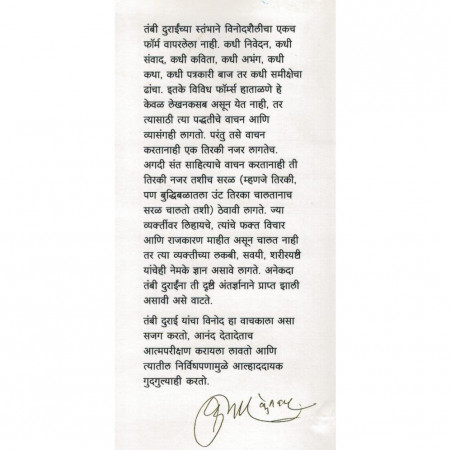 तंबी दुराईंच्या स्तंभाने विनोदशैलीचा एकच
फॉर्म वापरलेला नाही. कधी निवेदन, कधी
संवाद, कधी कविता, कधी अभंग, कधी
कथा, कधी पत्रकारी बाज तर कधी समीक्षेचा
ढांचा. इतके विविध फॉर्म्स हाताळणे हे
केवळ लेखनकसब असून येत नाही, तर
त्यासाठी त्या पद्धतीचे वाचन आणि
व्यासंगही लागतो. परंतु तसे वाचन
करतानाही एक तिरकी नजर लागतेच.
अगदी संत साहित्याचे वाचन करतानाही ती
तिरकी नजर तशीच सरळ (म्हणजे तिरकी,
पण बुद्धिबळातला उंट तिरका चालतानाच
सरळ चालतो तशी) ठेवावी लागते. ज्या
व्यक्तींवर लिहायचे, त्यांचे फक्त विचार
आणि राजकारण माहीत असून चालत नाही
तर त्या व्यक्तीच्या लकबी, सवयी, शरीरयष्टी
यांचेही नेमके ज्ञान असावे लागते. अनेकदा
तंबी दुराईंना ती दृष्टि अंतर्ज्ञानाने प्राप्त झाली
असावी असे वाटते.
तंबी दुराई यांचा विनोद हा वाचकाला असा
सजग करतो, आनंद देतादेताच
आत्मपरीक्षण करायला लावतो आणि
त्यातील निर्विषपणामुळे आल्हाददायक
गुदगुल्याही करतो.